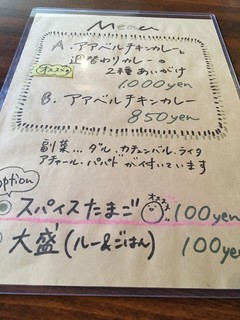 Menu
A. アアベルチキンカレーと
週替わりカレーの
オススメ
2種あいがけ
1.000yen
B. アアベルチキンカレー
850yen
副菜...ダル、カチュンバル、ライタ
アチャール、パパドが付いています
option
スパイスたまご オススメ 100yen
大盛(ルー&ごはん) 100yen